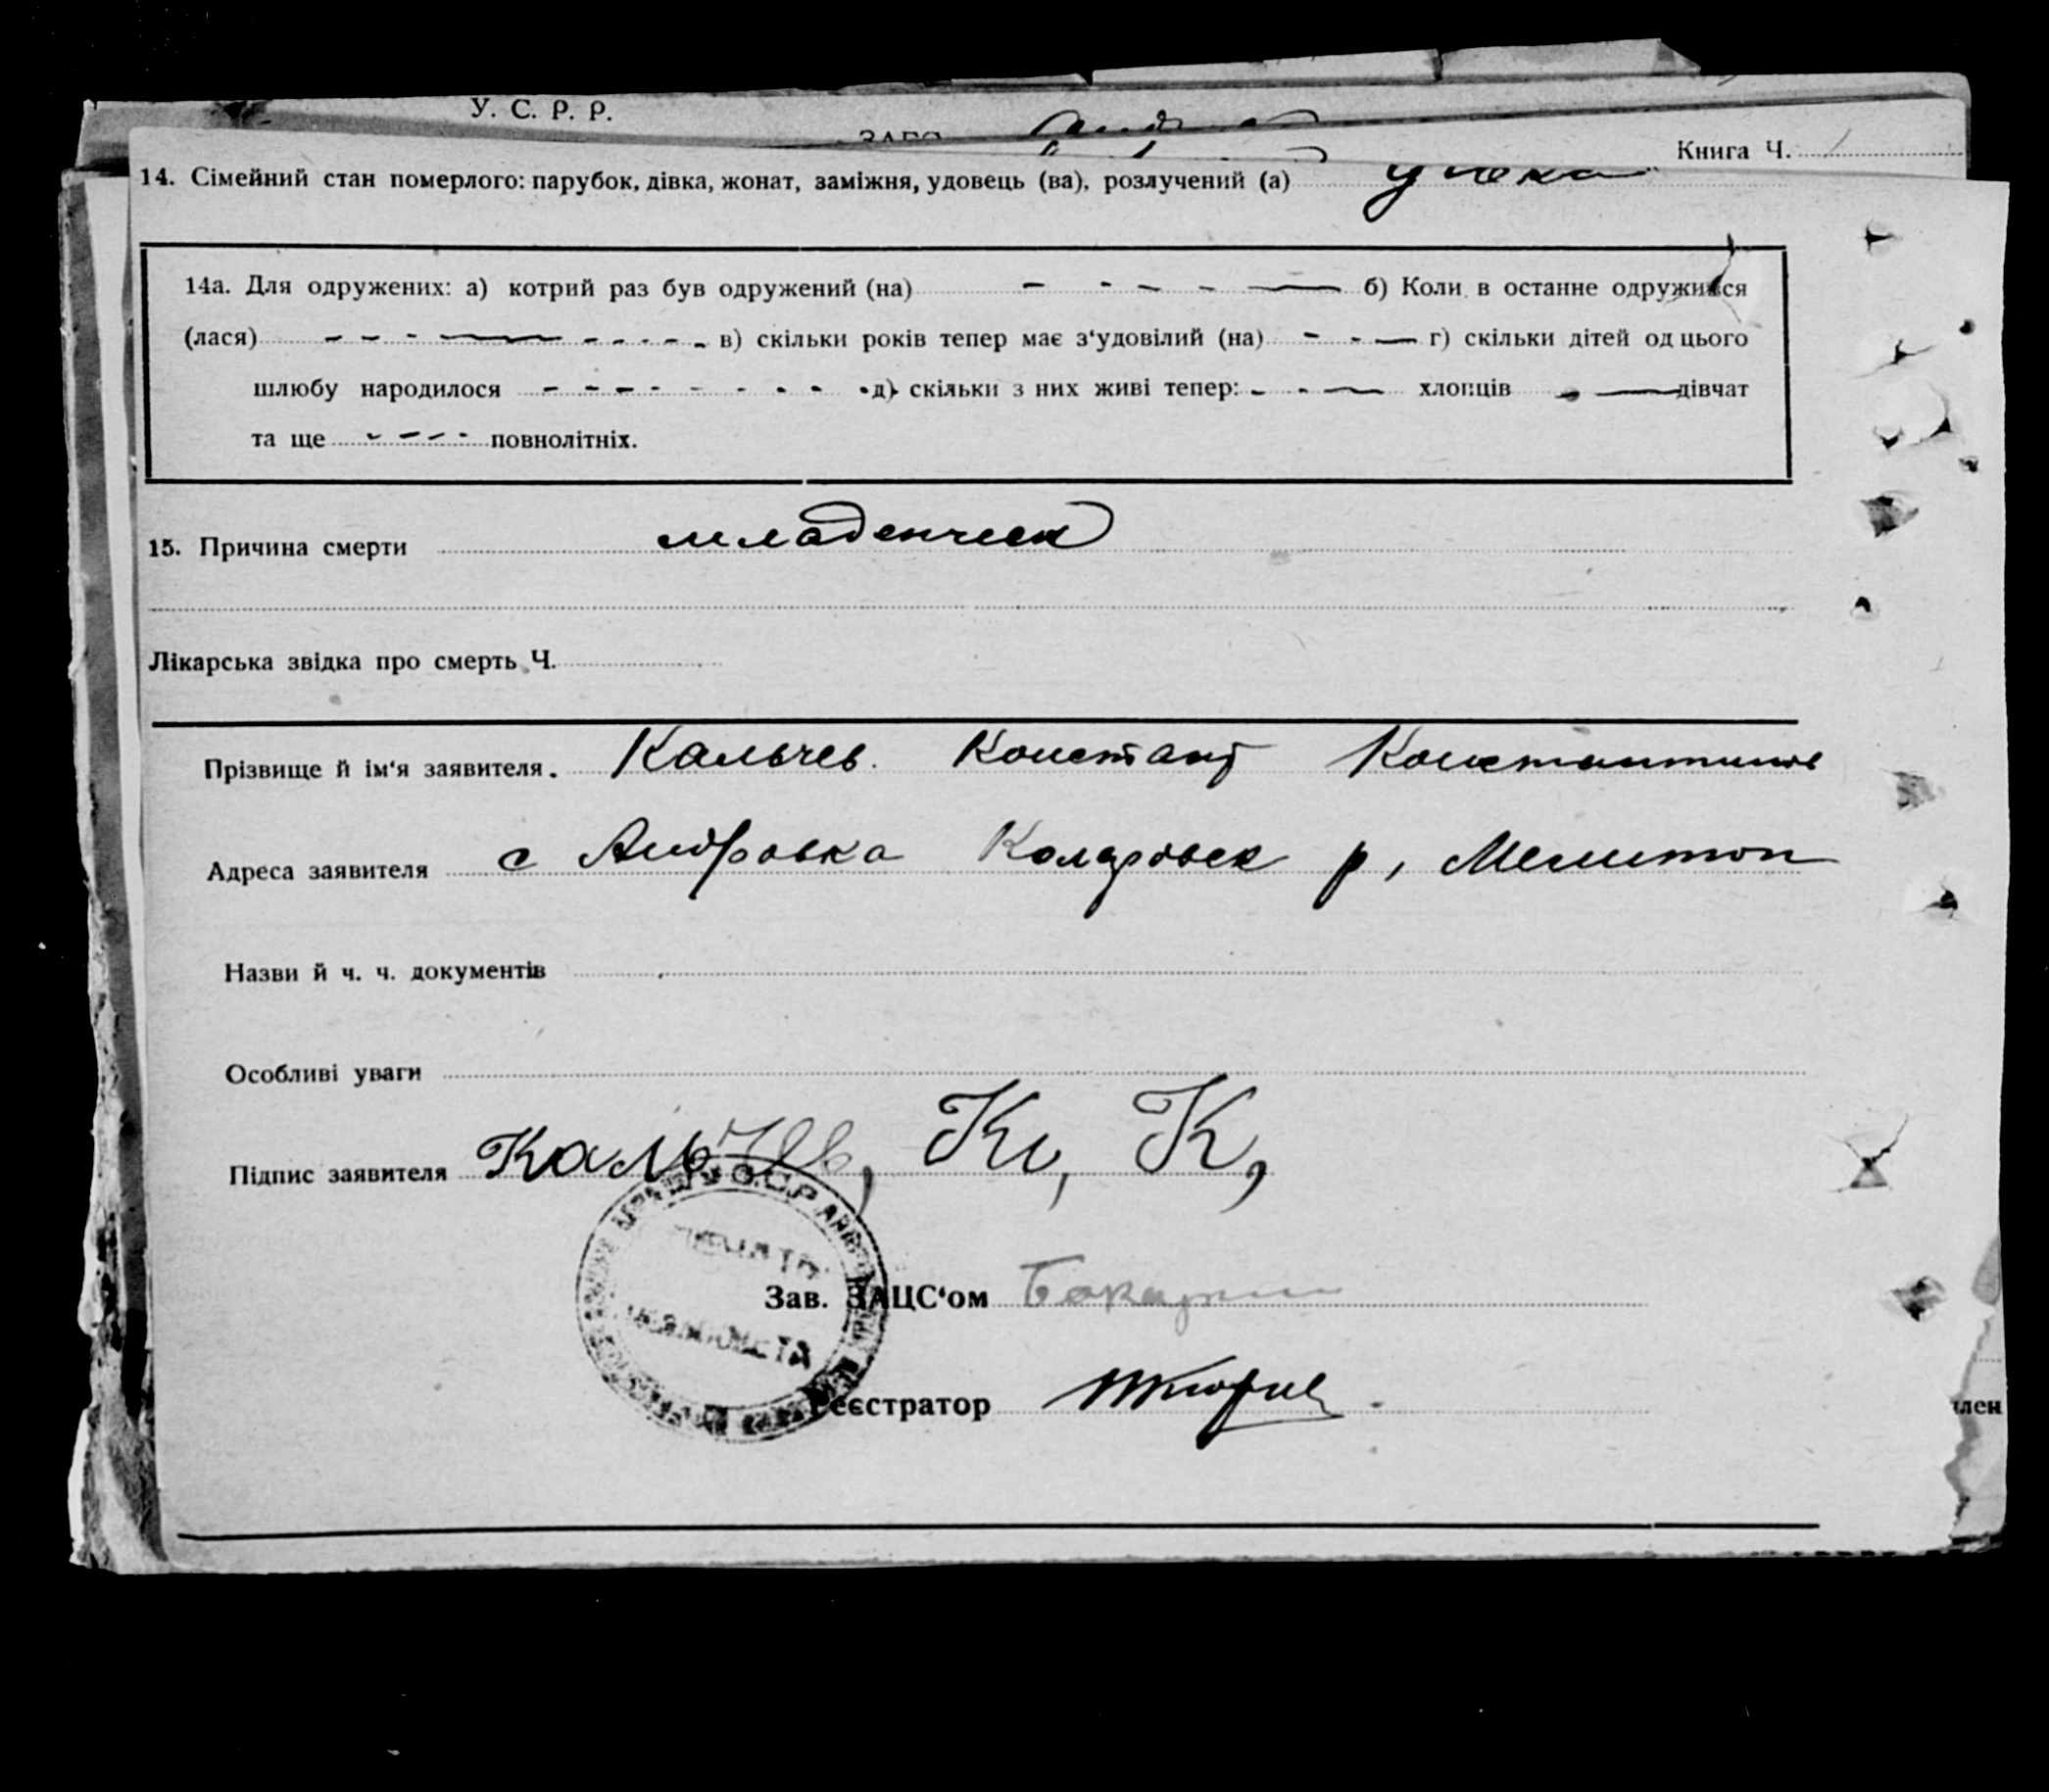 У. С. Р. Р.
Книга Ч.
14. Сімейний стан померлого: парубок, дівка, жонат, заміжня, удовець (ва), розлучений (а)
14а. Для одружених: а) котрий раз був одружений (на) б) Коли в останне одружився
(лася) в) скільки років тепер має з‘удовілий (на) г) скільки дітей од цього
шлюбу народилося д) скільки з них живі тепер: хлопців дівчат
та ще повнолітніх.
15. Причина смерти младенческ
Лікарська звідка про смерть Ч.
Прізвище й ім‘я заявителя. Кальчев Констант Константинов
Адреса заявителя с Андровка Коларовск р, Мелитоп
Назви й ч. ч. документів
Особливі уваги
Підпис заявителя Кальчев, К, К,
Зав. ЗАЦС‘ом
Реєстратор
лен